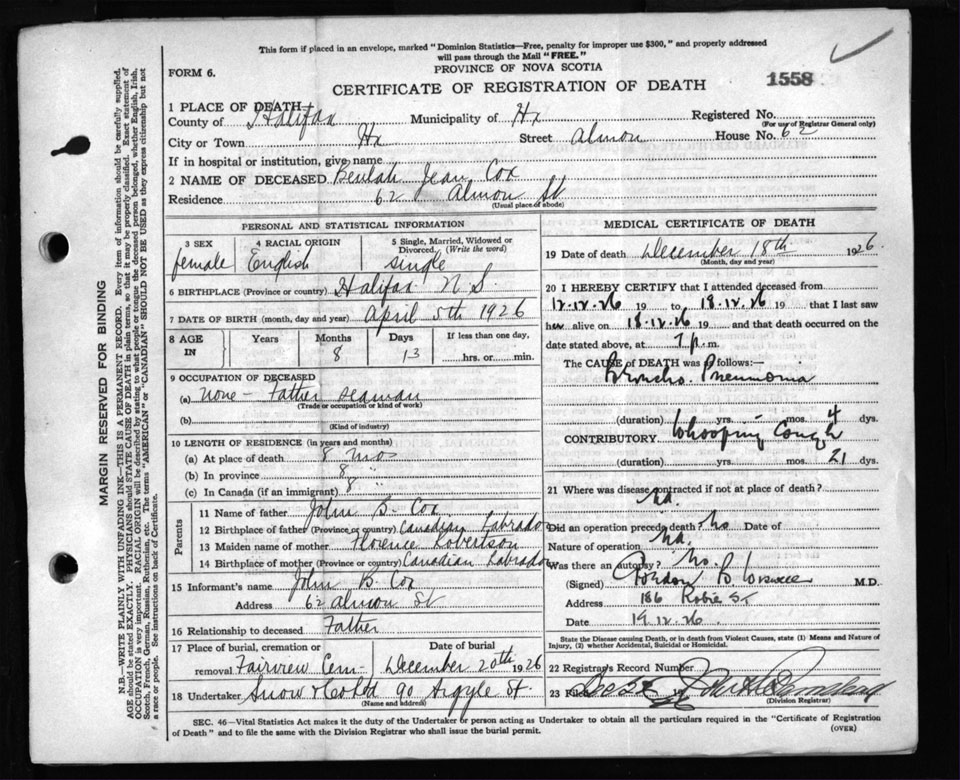 This form if placed in an envelope, marked "Dominion Statistics—Free, penalty for improper use $300," and properly addressed
will pass through the Mail "FREE."
PROVINCE OF NOVA SCOTIA
FORM 6.
CERTIFICATE OF REGISTRATION OF DEATH
1558
1 PLACE OF DEATH
County of Halifax Municipality of Hx Registered No.
(For use of Registrar General only)
City or Town Hx Street Almon House No. 62
If in hospital or institution, give name
2 NAME OF DECEASED Beulah Jean Cox
Residence 62 Almon St
(Usual place of abode)
PERSONAL AND STATISTICAL INFORMATION
3 SEX 4 RACIAL ORIGIN 5 Single, Married, Widowed or
Divorced (Write the word)
female English single
6 BIRTHPLACE (Province or country) Halifax N.S.
7 DATE OF BIRTH (month, day and year) April 5th 1926
8 AGE IN Years Months Days If less than one day,
8 13 hrs. or min.
9 OCCUPATION OF DECEASED
(a) None - Father seaman
(Trade or occupation or kind of work)
(b)
(Kind of industry)
10 LENGTH OF RESIDENCE (in years and months)
(a) At place of death 8 mos
(b) In province 8 "
(c) In Canada (if an immigrant) 8 "
Parents
11 Name of father John B. Cox
12 Birthplace of father (Province or country) Canadian Labrador
13 Maiden name of mother Florence Robertson
14 Birthplace of mother (Province or country) Canadian Labrador
15 Informant's name John B. Cox
Address 62 Almon St
16 Relationship to deceased Father
17 Place of burial, cremation or Date of burial
removal Fairview Cem- December 20th 1926
18 Undertaker Snow & Co Ltd 90 Argyle St.
(Name and address)
MEDICAL CERTIFICATE OF DEATH
19 Date of death December 18th 1926.
(Month, day and year)
20 I HEREBY CERTIFY that I attended deceased from
12.12.26 19 to 18.12.26 19 that I last saw
her alive on 18.12.26 19 and that death occurred on the
date stated above, at 7 p.m.
The CAUSE of DEATH was as follows:—
Broncho. Pneumonia
(duration) yrs. mos. 4 dys.
CONTRIBUTORY Whooping Cough
(duration) yrs. mos. 21 dys.
21 Where was disease contracted if not at place of death?
Did an operation precede death? No Date of
Nature of operation
Was there an autopsy? No.
(Signed) Gordon B Wiswell M.D.
Address 186 Robie St.
Date 19.12.26.
State the Disease causing Death, or in death from Violent Causes, state (1) Means and Nature of
Injury, (2) whether Accidental, Suicidal or Homicidal.
22 Registrar's Record Number
23 Filed
(Division Registrar)
SEC. 46—Vital Statistics Act makes it the duty of the Undertaker or person acting as Undertaker to obtain all the particulars required in the "Certificate of Registration
of Death" and to file the same with the Division Registrar who shall issue the burial permit.
(OVER)
MARGIN RESERVED FOR BINDING
N.B.—WRITE PLAINLY WITH UNFADING INK—THIS IS A PERMANENT RECORD. Every item of information should be carefully supplied.
AGE should be stated EXACTLY. PHYSICIANS should STATE CAUSE OF DEATH in plain terms, so that it may be properly classified. Exact statement of
OCCUPATION is very important. RACIAL ORIGIN will be described by stating to what people or tongue the deceased person belonged, whether English, Irish,
Scotch, French, German, Russian, Ruthenian, etc. The terms "AMERICAN" or "CANADIAN" SHOULD NOT BE USED as they express citizenship but not
a race or people. See instructions on back of Certificate.